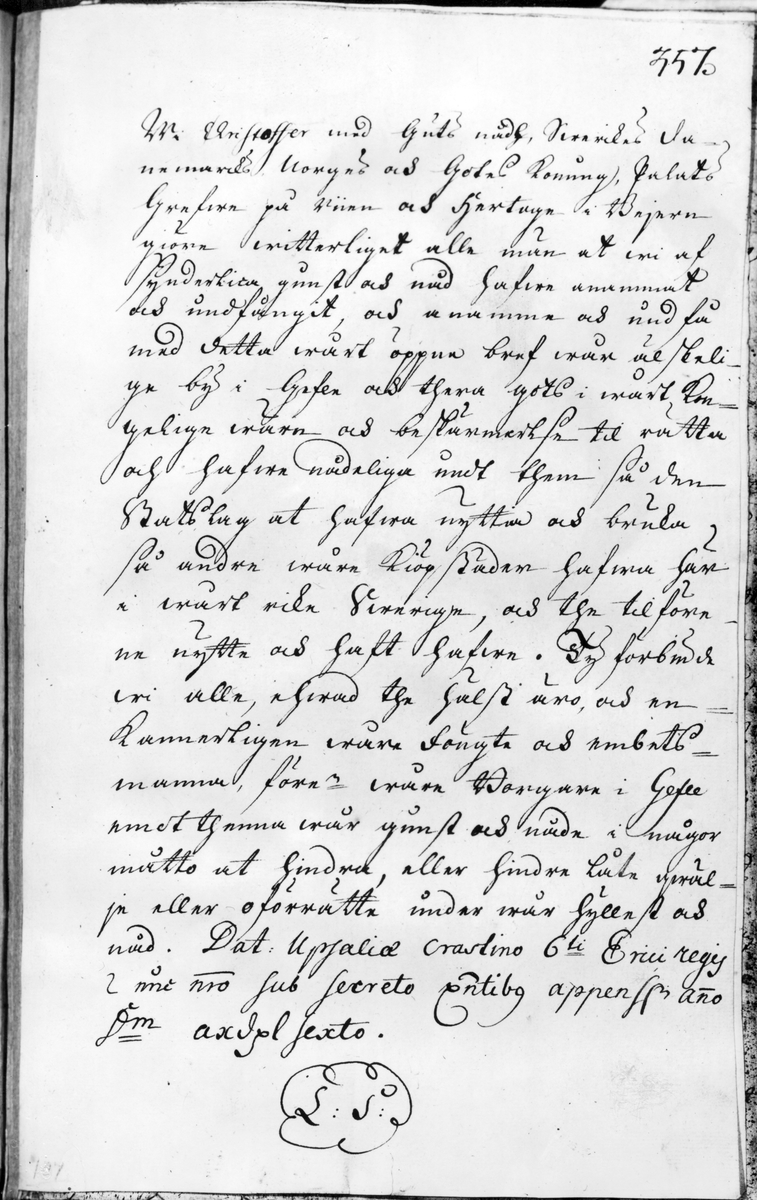 357.
Wi Christoffer med Guts nådh, Swerikes Da-
nemarcks, Norges ock Götes Konung, Palats
Grefwe på Riien ock Hertoge i Beijern
giöre witterliget alle män at wi af
synderlica gunst ock nåd hafwe anammat
ock undfångit, ock anamme ock undfå
med detta wart öppne bref wår älskeli-
ge by i Gefle ock thera gots i wart Kon-
gelige wärn ock beskärmerlse til rätta
och hafwe nådeliga undt them så den
Statslag at hafwa nyttia ock bruka
så andre wåre Kiöpstäder hafwa här
i wart rike Swerige, ock the tilföre-
ne nytte ock haft hafwe. Ty förbiude
wi alle, ehwad the hälst äro, ock en-
kannerligen wåre Fougte ock embets-
manna, före:ne wåre Borgare i Gefle
emot thenna wår gunst ock nåde i någor
matto at hindra, eller hindre låte qwäl-
je eller oförrätte under wår hyllest ock
nåd. Dat: Upsaliæ crastino Sti Erici regis
nro sub secreto pñtibg appenss año
dm sexto.
L: S: